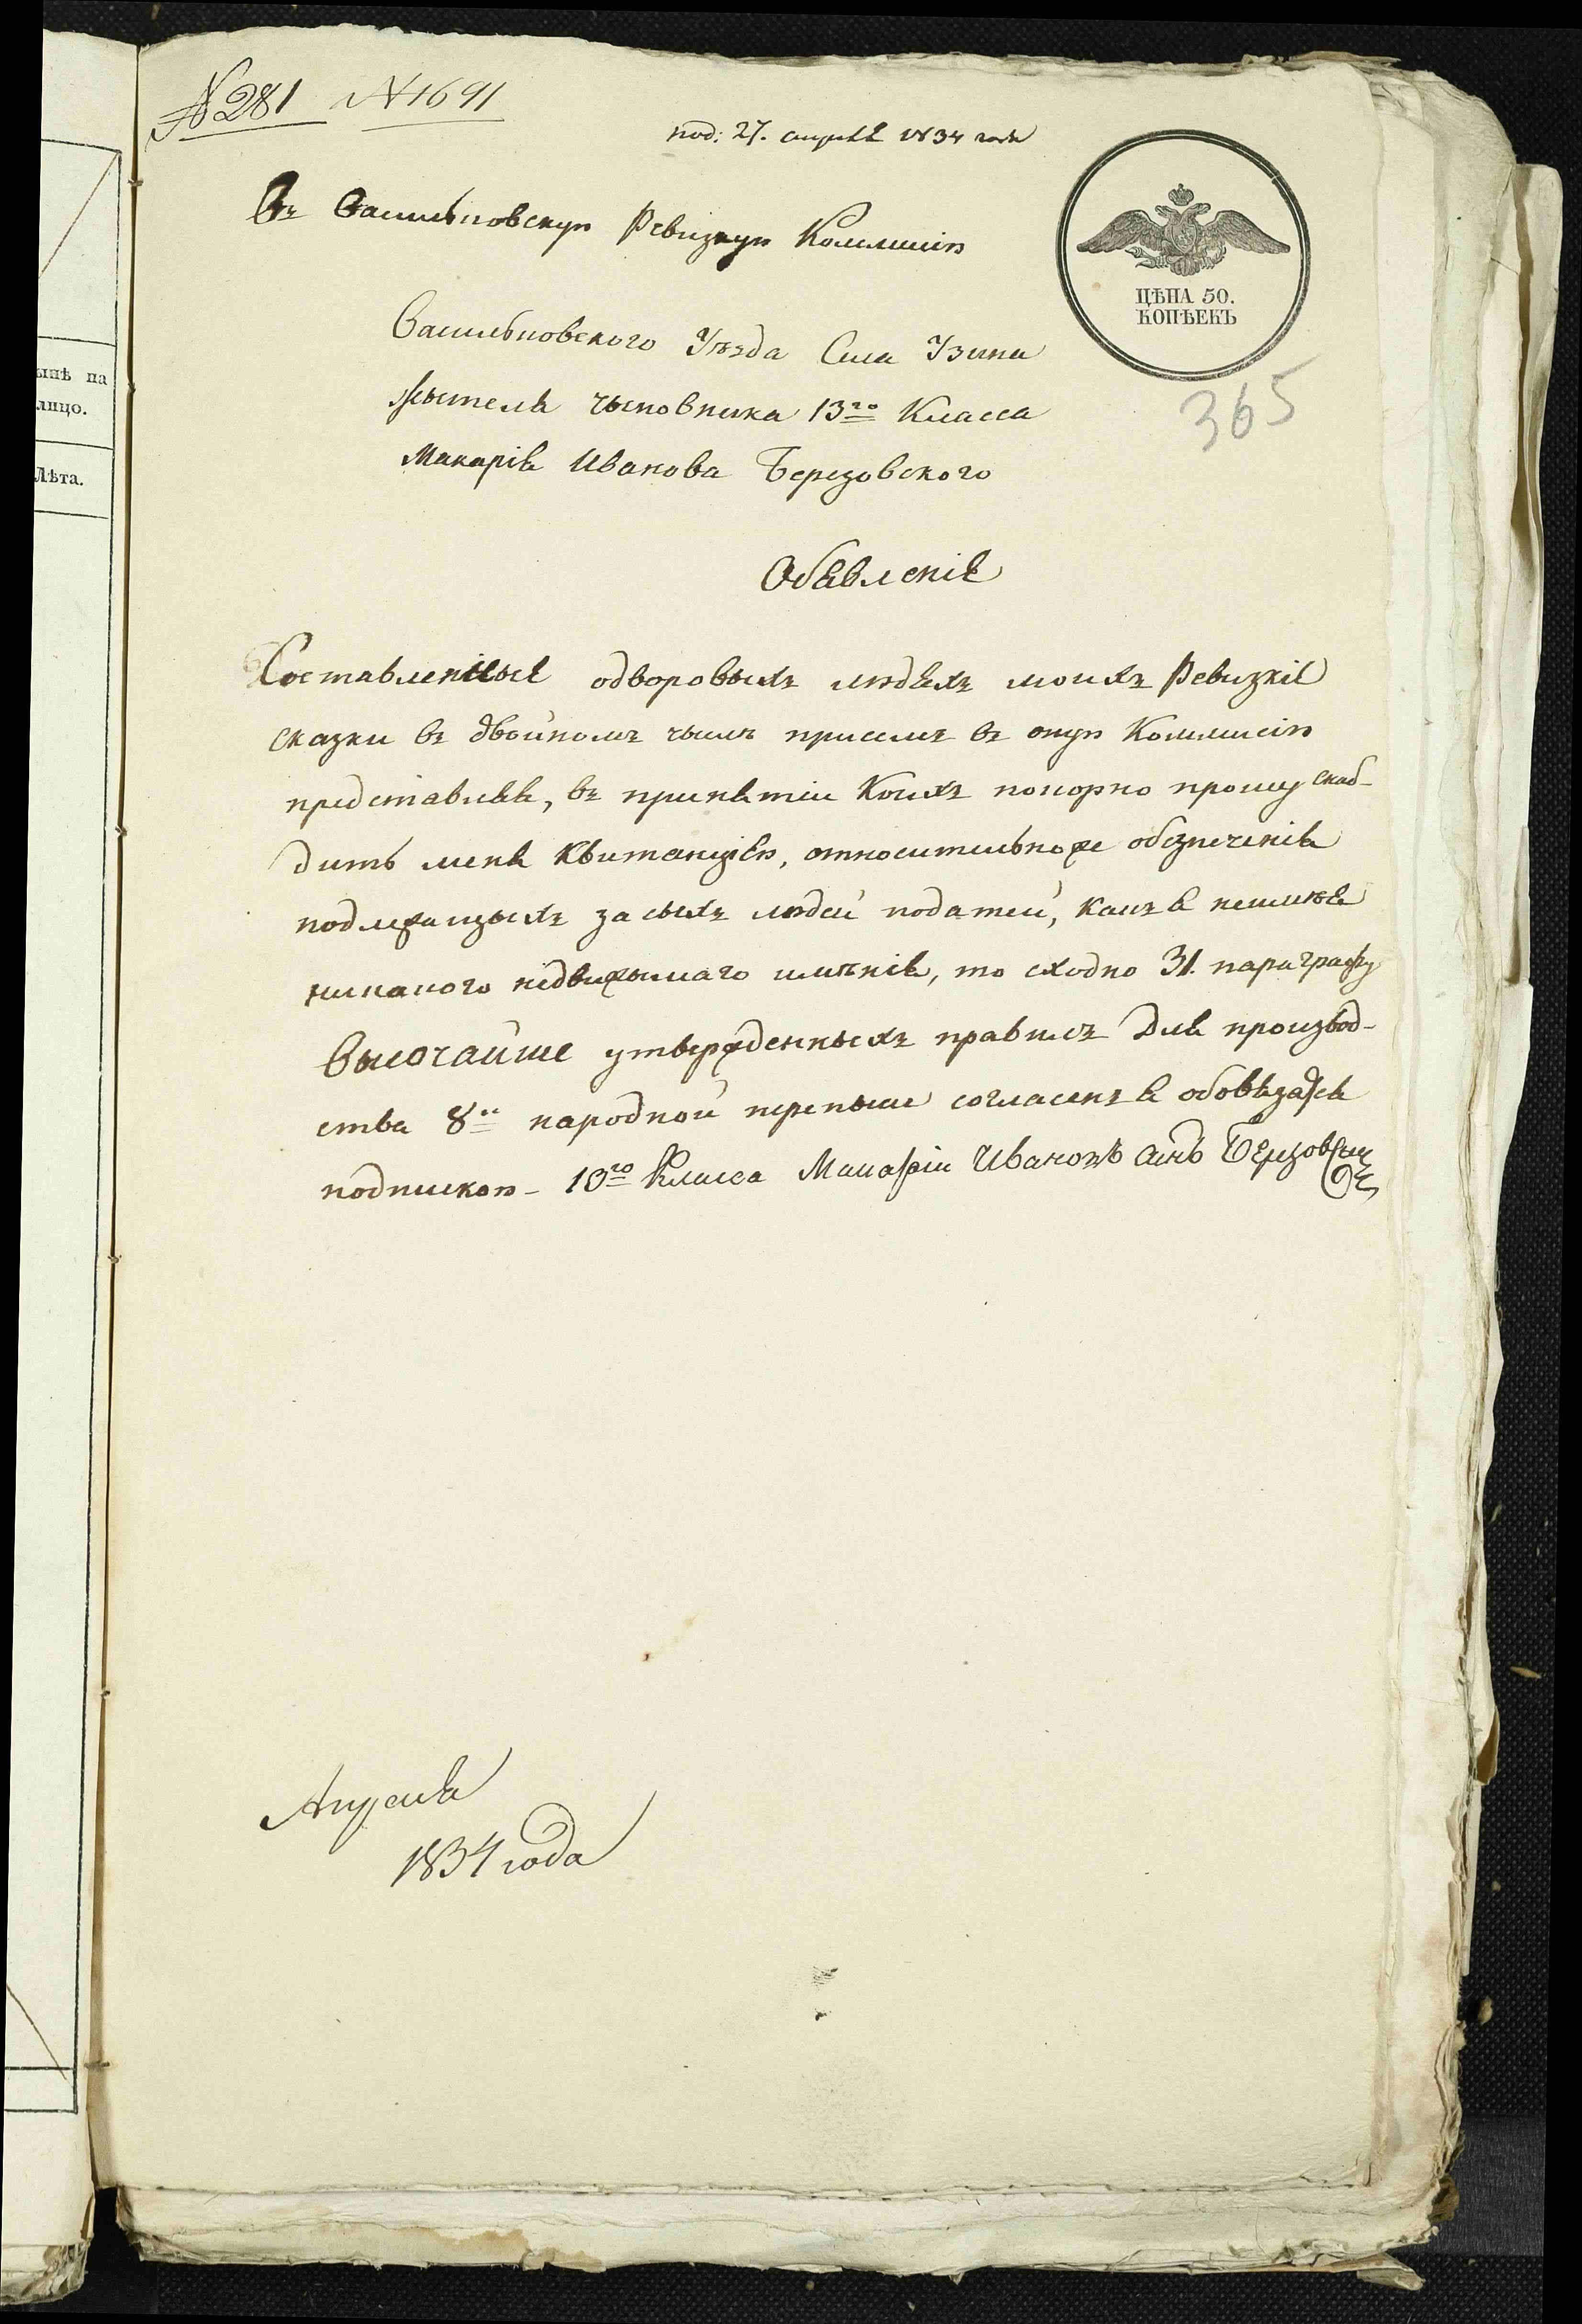 № 281 № 1691
под: 27. апреля 1834 года
Въ Васильковскую Ревизкую Коммисію
ЦѢНА 50.
КОПѢЕКЪ
Васильковского Уѣзда Села Узина
365
жытеля чыновника 13го Класса
Макарія Иванова Березовского
Обявленіе
Составленные одворовыхъ людяхъ моихъ Ревизкіе
сказки въ двойномъ чыслѣ присемъ въ оную Коммисію
представляя, въ принятіи Коихъ покорно прошу снаб-
дить меня Квитанціею, относительно же обезпеченія
подлежащыхъ за сыхъ людей податей, какъ я неимѣя
никакого недвижымаго имѣнія, то сходно 31. параграфу
Высочайше утвержденныхъ правилъ для производ-
ства 8й народной переписи согласенъ я обовязатся
подпискою - 13го Класса Макарій Ивановъ синъ Березовскій
Апреля
1834 года
ынѣ на
лицо.
Лѣта.